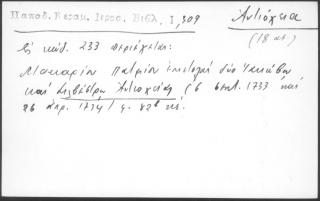 Παπαδ. Κεραμ. Ιεροσ. Βιβλ. I, 309
Ἀντιόχεια
(18 αι.)
Εἰς κώδ. 233 περιέχεται:
Μακαρίου Πατμίου ἐπιστολαὶ δύο Ἰακώβῳ
καὶ Σιλβέστρῳ Ἀντιοχείας (6 σεπτ. 1733 καὶ
26 ἀπρ. 1734) φ. 82β κέ.